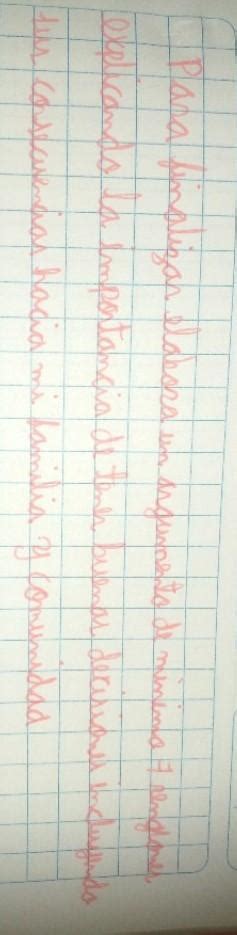 Para finalizar elabora un argumento de mínimo 7 renglones
explicando la importancia de tener buenas decisiones incluyendo
sus consecuencias hacia mi familia y comunidad